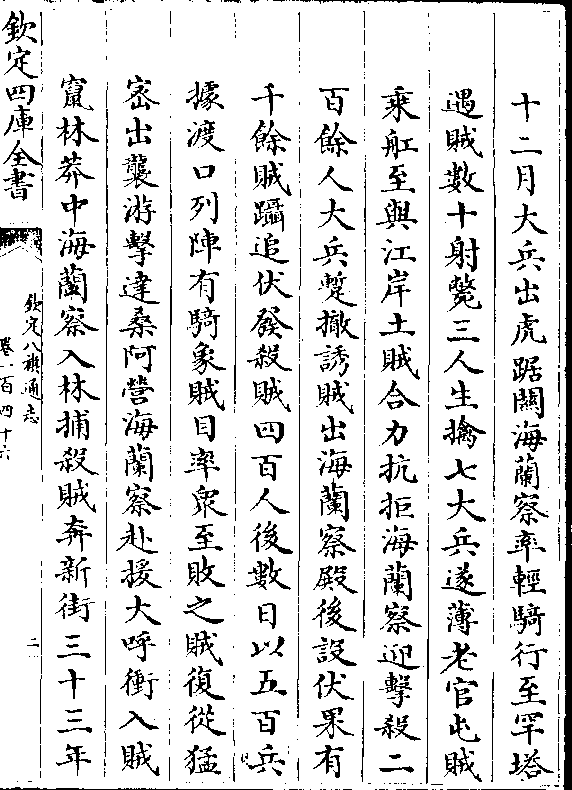 十二月大兵出虎踞關海蘭察率輕騎行至罕塔
遇賊數十射斃三人生擒七大兵遂薄老官屯賊
乘舡至與江岸土賊合力抗拒海蘭察迎擊殺二
百餘人大兵蹔撤誘賊出海蘭察殿後設伏果有
千餘賊躡追伏發殺賊四百人後數日以五百兵
據渡口列陣有騎象賊目率衆至敗之賊復從猛
密出襲游擊達桑阿營海蘭察赴援大呼衝入賊
竄林莽中海蘭察入林捕殺賊奔新街三十三年
欽定四庫全書
欽定八旗通志
卷一百四十六
二